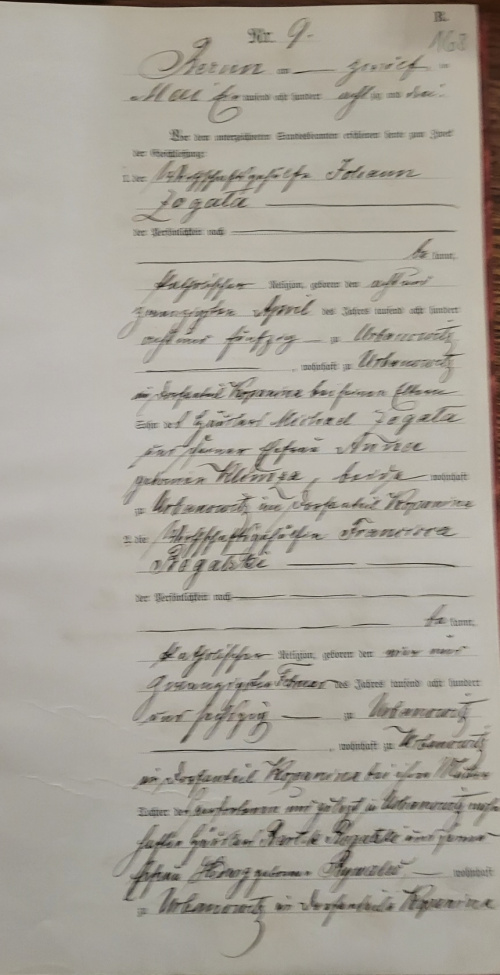 B.
Nr. 9.
168
Berun am zwölf ten
Mai tausend acht hundert acht zig und drei.
Vor dem unterzeichneten Standesbeamten erschienen heute zum Zweck
der Eheschließung:
1. der Wirthschaftsgehülfe Johann
Zogala
der Persönlichkeit nach
be kannt,
katholischer Religion, geboren den acht und
zwanzigsten April des Jahres tausend acht hundert
acht und fünfzig zu Urbanowitz
, wohnhaft zu Urbanowitz
im Dorfantheil Kopanina bei seinen Eltern
Sohn des Häuslers Michael Zogala
und seiner Ehefrau Anna
geborenen Klimza, beide wohnhaft
zu Urbanowitz im Dorfantheil Kopanina
2. die Wirthschaftsgehülfin Francisca
Rogalski
der Persönlichkeit nach
be kannt,
katholischer Religion, geboren den
zwanzigsten Februar des Jahres tausend acht hundert
und sechzig zu Urbanowitz
, wohnhaft zu Urbanowitz
im Dorfantheil Kopanina bei ihrer Mutter
Tochter des verstorbenen und zuletzt in Urbanowitz wohn
haften Häuslers Rogalski und seiner
Ehefrau Hedwig geborenen wohnhaft
zu Urbanowitz im Dorfantheile Kopanina